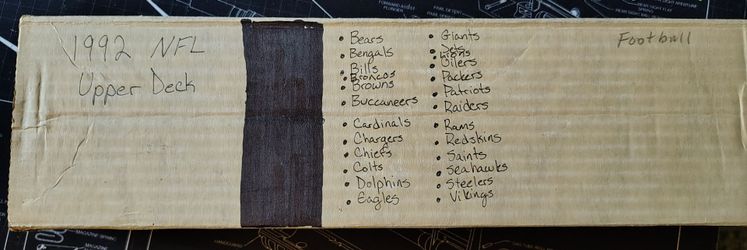 1992 NFL
Upper Deck
• Bears
• Bengals
• Bills
• Broncos
• Browns
• Buccaneers
• Cardinals
• Chargers
• Chiefs
• Colts
• Dolphins
• Eagles
• Giants
• Jets
• Lions
• Oilers
• Packers
• Patriots
• Raiders
• Rams
• Redskins
• Saints
• Seahawks
• Steelers
• Vikings
Football
MAGAZINE SPRING